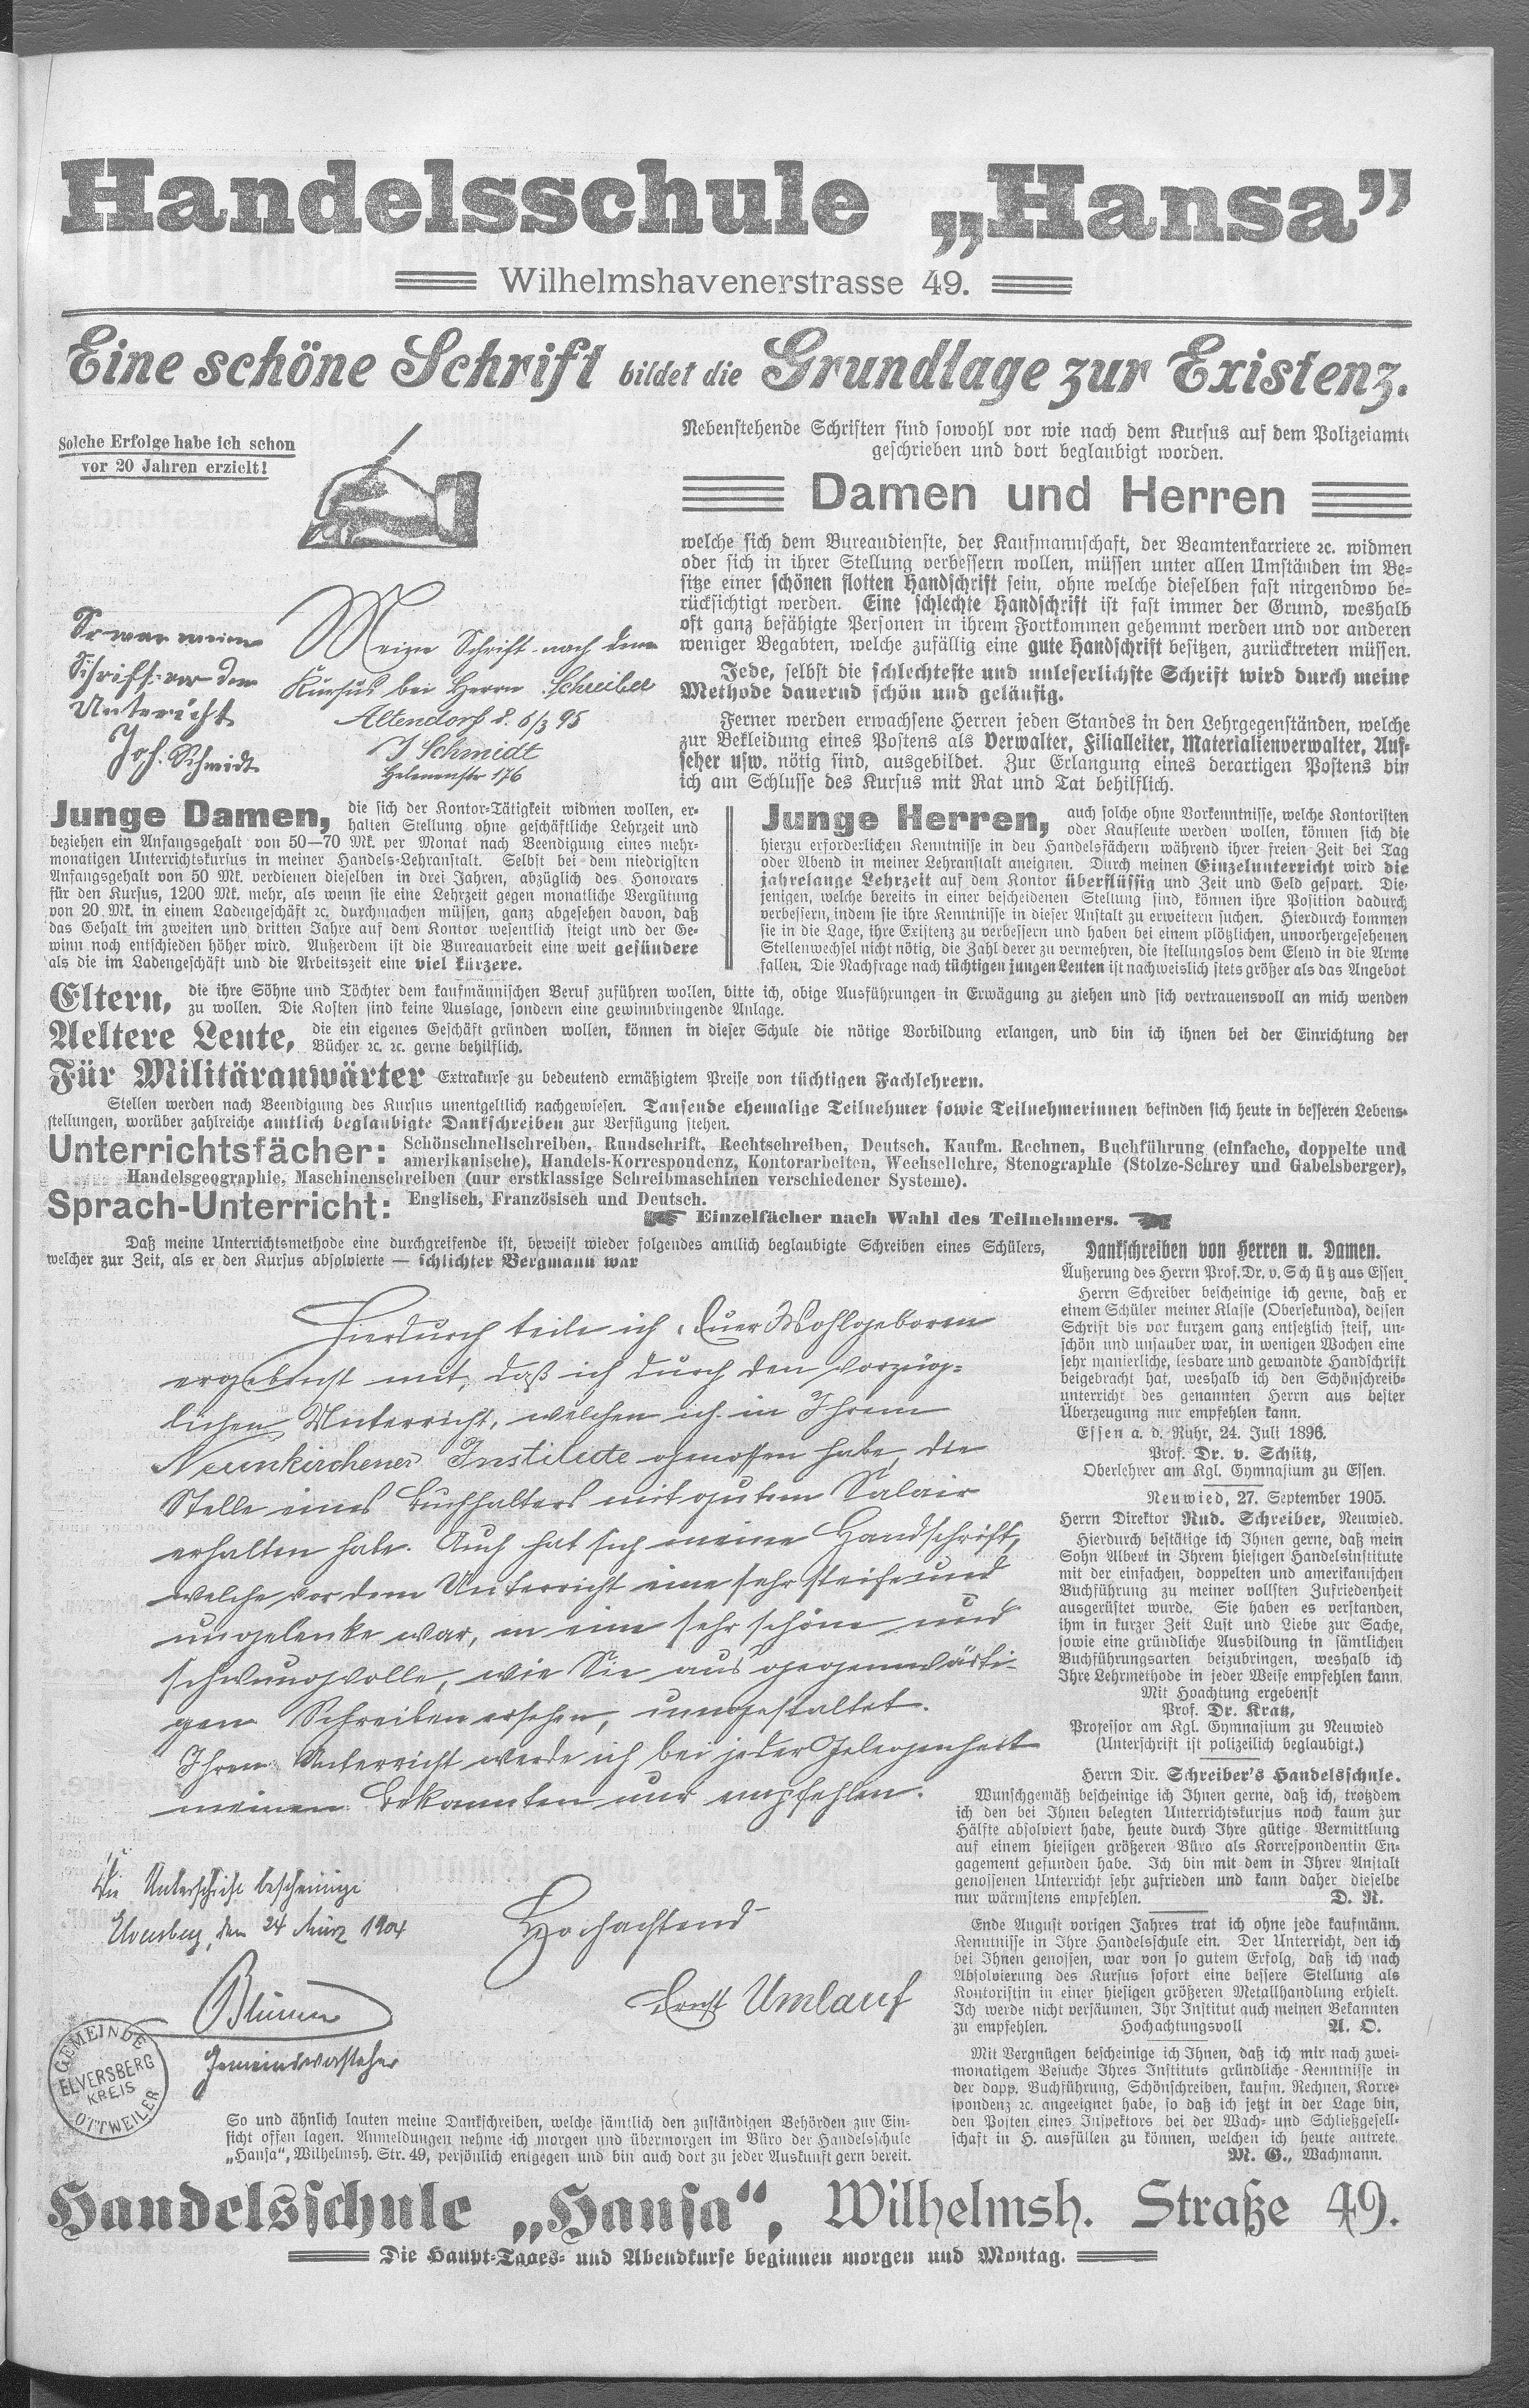 Handelsschule „Hansa”
Wilhelmshavenerstrasse 49.
Eine schöne Schrift bildet die Grundlage zur Existenz.
Solche Erfolge habe ich schon
vor 20 Jahren erzielt!
So war meine
Schrift vor dem
Unterricht
Joh. Schmidt
Meine Schrift nach dem
Kursus bei Herrn Schreiber
Altendorf d. 6/3 95
J Schmidt
176
Nebenstehende Schriften sind sowohl vor wie nach dem Kursus auf dem Polizeiamte
geschrieben und dort beglaubigt worden.
Damen und Herren
welche sich dem Bureaudienste, der Kaufmannschaft, der Beamtenkarriere ꝛc. widmen
oder sich in ihrer Stellung verbessern wollen, müssen unter allen Umständen im Be-
sitze einer schönen flotten Handschrift sein, ohne welche dieselben fast nirgendwo be-
rücksichtigt werden. Eine schlechte Handschrift ist fast immer der Grund, weshalb
oft ganz befähigte Personen in ihrem Fortkommen gehemmt werden und vor anderen
weniger Begabten, welche zufällig eine gute Handschrift besitzen, zurücktreten müssen.
Jede, selbst die schlechteste und unleserlichste Schrift wird durch meine
Methode dauernd schön und geläufig.
Ferner werden erwachsene Herren jeden Standes in den Lehrgegenständen, welche
zur Bekleidung eines Postens als Verwalter, Filialleiter, Materialienverwalter, Auf-
seher usw. nötig sind, ausgebildet. Zur Erlangung eines derartigen Postens bin
ich am Schlusse des Kursus mit Rat und Tat behilflich.
Junge Damen, die sich der Kontor-Tätigkeit widmen wollen, er-
halten Stellung ohne geschäftliche Lehrzeit und
beziehen ein Anfangsgehalt von 50—70 Mk. per Monat nach Beendigung eines mehr-
monatigen Unterrichtskursus in meiner Handels-Lehranstalt. Selbst bei dem niedrigsten
Anfangsgehalt von 50 Mk. verdienen dieselben in drei Jahren, abzüglich des Honorars
für den Kursus, 1200 Mk. mehr, als wenn sie eine Lehrzeit gegen monatliche Vergütung
von 20 Mk. in einem Ladengeschäft ꝛc. durchmachen müssen, ganz abgesehen davon, daß
das Gehalt im zweiten und dritten Jahre auf dem Kontor wesentlich steigt und der Ge-
winn noch entschieden höher wird. Außerdem ist die Bureauarbeit eine weit gesündere
als die im Ladengeschäft und die Arbeitszeit eine viel kürzere.
Junge Herren, auch solche ohne Vorkenntnisse, welche Kontoristen
oder Kaufleute werden wollen, können sich die
hierzu erforderlichen Kenntnisse in den Handelsfächern während ihrer freien Zeit bei Tag
oder Abend in meiner Lehranstalt aneignen. Durch meinen Einzelunterricht wird die
jahrelange Lehrzeit auf dem Kontor überflüssig und Zeit und Geld gespart. Die-
jenigen, welche bereits in einer bescheidenen Stellung sind, können ihre Position dadurch
verbessern, indem sie ihre Kenntnisse in dieser Anstalt zu erweitern suchen. Hierdurch kommen
sie in die Lage, ihre Existenz zu verbessern und haben bei einem plötzlichen, unvorhergesehenen
Stellenwechsel nicht nötig, die Zahl derer zu vermehren, die stellungslos dem Elend in die Arme
fallen. Die Nachfrage nach tüchtigen jungen Leuten ist nachweislich stets größer als das Angebot
Eltern, die ihre Söhne und Töchter dem kaufmännischen Beruf zuführen wollen, bitte ich, obige Ausführungen in Erwägung zu ziehen und sich vertrauensvoll an mich wenden
zu wollen. Die Kosten sind keine Auslage, sondern eine gewinnbringende Anlage.
Aeltere Leute, die ein eigenes Geschäft gründen wollen, können in dieser Schule die nötige Vorbildung erlangen, und bin ich ihnen bei der Einrichtung der
Bücher ꝛc. ꝛc. gerne behilflich.
Für Militäranwärter Extrakurse zu bedeutend ermäßigtem Preise von tüchtigen Fachlehrern.
Stellen werden nach Beendigung des Kursus unentgeltlich nachgewiesen. Tausende ehemalige Teilnehmer sowie Teilnehmerinnen befinden sich heute in besseren Lebens-
stellungen, worüber zahlreiche amtlich beglaubigte Dankschreiben zur Verfügung stehen.
Unterrichtsfächer: Schönschnellschreiben, Rundschrift, Rechtschreiben, Deutsch, Kaufm. Rechnen, Buchführung (einfache, doppelte und
amerikanische), Handels-Korrespondenz, Kontorarbeiten, Wechsellehre, Stenographie (Stolze-Schrey und Gabelsberger),
Handelsgeographie, Maschinenschreiben (nur erstklassige Schreibmaschinen verschiedener Systeme).
Sprach-Unterricht: Englisch, Französisch und Deutsch.
Einzelfächer nach Wahl des Teilnehmers.
Daß meine Unterrichtsmethode eine durchgreifende ist, beweist wieder folgendes amtlich beglaubigte Schreiben eines Schülers,
welcher zur Zeit, als er den Kursus absolvierte — schlichter Bergmann war
Hierdurch teile ich Euer Wohlgeboren
ergebenst mit, daß ich durch den vorzüg-
lichen Unterricht, welchen ich in Ihrem
Neunkirchener Institute genossen habe, die
Stelle eines Buchhalters mit gutem Salair
erhalten habe. Auch hat sich meine Handschrift,
welche vor dem Unterricht eine sehr steife und
ungelenke war, in eine sehr schöne und
schwungvolle, wie Sie aus gegenwärti-
gen Schreiben ersehen, umgestaltet.
Ihren Unterricht werde ich bei jeder Gelegenheit
meinen Bekannten nur empfehlen.
Die Unterschrift bescheinige
Elversberg, den 24 März 1904
Gemeindevorsteher
Hochachtend
Ernst Umlauf
GEMEINDE
ELVERSBERG
KREIS
OTTWEILER
So und ähnlich lauten meine Dankschreiben, welche sämtlich den zuständigen Behörden zur Ein-
sicht offen lagen. Anmeldungen nehme ich morgen und übermorgen im Büro der Handelsschule
„Hansa“, Wilhelmsh. Str. 49, persönlich entgegen und bin auch dort zu jeder Auskunft gern bereit.
Dankschreiben von Herren u. Damen.
Äußerung des Herrn Prof. Dr. v. Schütz aus Essen.
Herrn Schreiber bescheinige ich gerne, daß er
einem Schüler meiner Klasse (Obersekunda), dessen
Schrift bis vor kurzem ganz entsetzlich steif, un-
schön und unsauber war, in wenigen Wochen eine
sehr manierliche, lesbare und gewandte Handschrift
beigebracht hat, weshalb ich den Schönschreib-
unterricht des genannten Herrn aus bester
Überzeugung nur empfehlen kann.
Essen a. d. Ruhr, 24. Juli 1896.
Prof. Dr. v. Schütz,
Oberlehrer am Kgl. Gymnasium zu Essen.
Neuwied, 27. September 1905.
Herrn Direktor Rud. Schreiber, Neuwied.
Hierdurch bestätige ich Ihnen gerne, daß mein
Sohn Albert in Ihrem hiesigen Handelsinstitute
mit der einfachen, doppelten und amerikanischen
Buchführung zu meiner vollsten Zufriedenheit
ausgerüstet wurde. Sie haben es verstanden,
ihm in kurzer Zeit Lust und Liebe zur Sache,
sowie eine gründliche Ausbildung in sämtlichen
Buchführungsarten beizubringen, weshalb ich
Ihre Lehrmethode in jeder Weise empfehlen kann.
Mit Hoachtung ergebenst
Prof. Dr. Kratz,
Professor am Kgl. Gymnasium zu Neuwied
(Unterschrift ist polizeilich beglaubigt.)
Herrn Dir. Schreiber's Handelsschule.
Wunschgemäß bescheinige ich Ihnen gerne, daß ich, trotzdem
ich den bei Ihnen belegten Unterrichtskursus noch kaum zur
Hälfte absolviert habe, heute durch Ihre gütige Vermittlung
auf einem hiesigen größeren Büro als Korrespondentin En-
gagement gefunden habe. Ich bin mit dem in Ihrer Anstalt
genossenen Unterricht sehr zufrieden und kann daher dieselbe
nur wärmstens empfehlen. D. R.
Ende August vorigen Jahres trat ich ohne jede kaufmänn.
Kenntnisse in Ihre Handelsschule ein. Der Unterricht, den ich
bei Ihnen genossen, war von so gutem Erfolg, daß ich nach
Absolvierung des Kursus sofort eine bessere Stellung als
Kontoristin in einer hiesigen größeren Metallhandlung erhielt.
Ich werde nicht versäumen, Ihr Institut auch meinen Bekannten
zu empfehlen. Hochachtungsvoll A. O.
Mit Vergnügen bescheinige ich Ihnen, daß ich mir nach zwei-
monatigem Besuche Ihres Instituts gründliche Kenntnisse in
der dopp. Buchführung, Schönschreiben, kaufm. Rechnen, Korre-
spondenz ꝛc. angeeignet habe, so daß ich jetzt in der Lage bin,
den Posten eines Inspektors bei der Wach- und Schließgesell-
schaft in H. ausfüllen zu können, welchen ich heute antrete.
M. G., Wachmann.
Handelsschule „Hansa“, Wilhelmsh. Straße 49.
Die Haupt-Tages- und Abendkurse beginnen morgen und Montag.